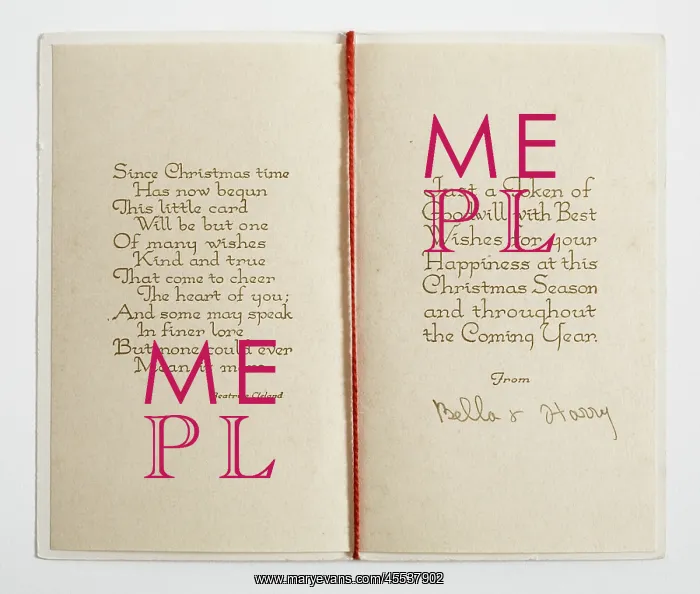 Since Christmas time
Has now begun
This little card
Will be but one
Of many wishes
Kind and true
That come to cheer
The heart of you;
And some may speak
In finer lore
But none could ever
Mean it more
Beatrice Cleland
ME
PL
Just a Token of
Goodwill with Best
Wishes for your
Happiness at this
Christmas Season
and throughout
the Coming Year.
From
Bella & Harry
ME
PL
www.maryevans.com/45537902